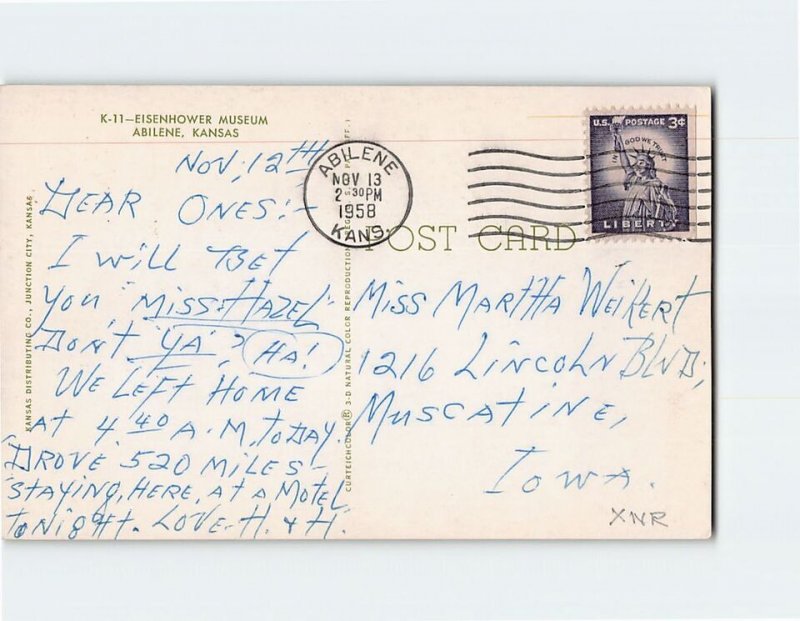 K-11—EISENHOWER MUSEUM
ABILENE, KANSAS
NOV, 12TH
DEAR ONES:-
I WILL BET
YOU "MISS-HAZEL"
DON'T "YA"? HA!
WE LEFT HOME
AT 4.40 A.M. TODAY.
DROVE 520 MILES-
STAYING, HERE, AT A MOTEL
TONIGHT. LOVE-H. & H.
KANSAS DISTRIBUTING CO., JUNCTION CITY, KANSAS
CURTEICHCOLOR® 3-D NATURAL COLOR REPRODUCTION
ABILENE
NOV 13
2 30 PM
1958
KANS.
U.S. POSTAGE 3¢
IN GOD WE TRUST
LIBERTY
POST CARD
MISS MARTHA WEIKERT
1216 LINCOLN BLVD;
MUSCATINE,
IOWA.
XNR